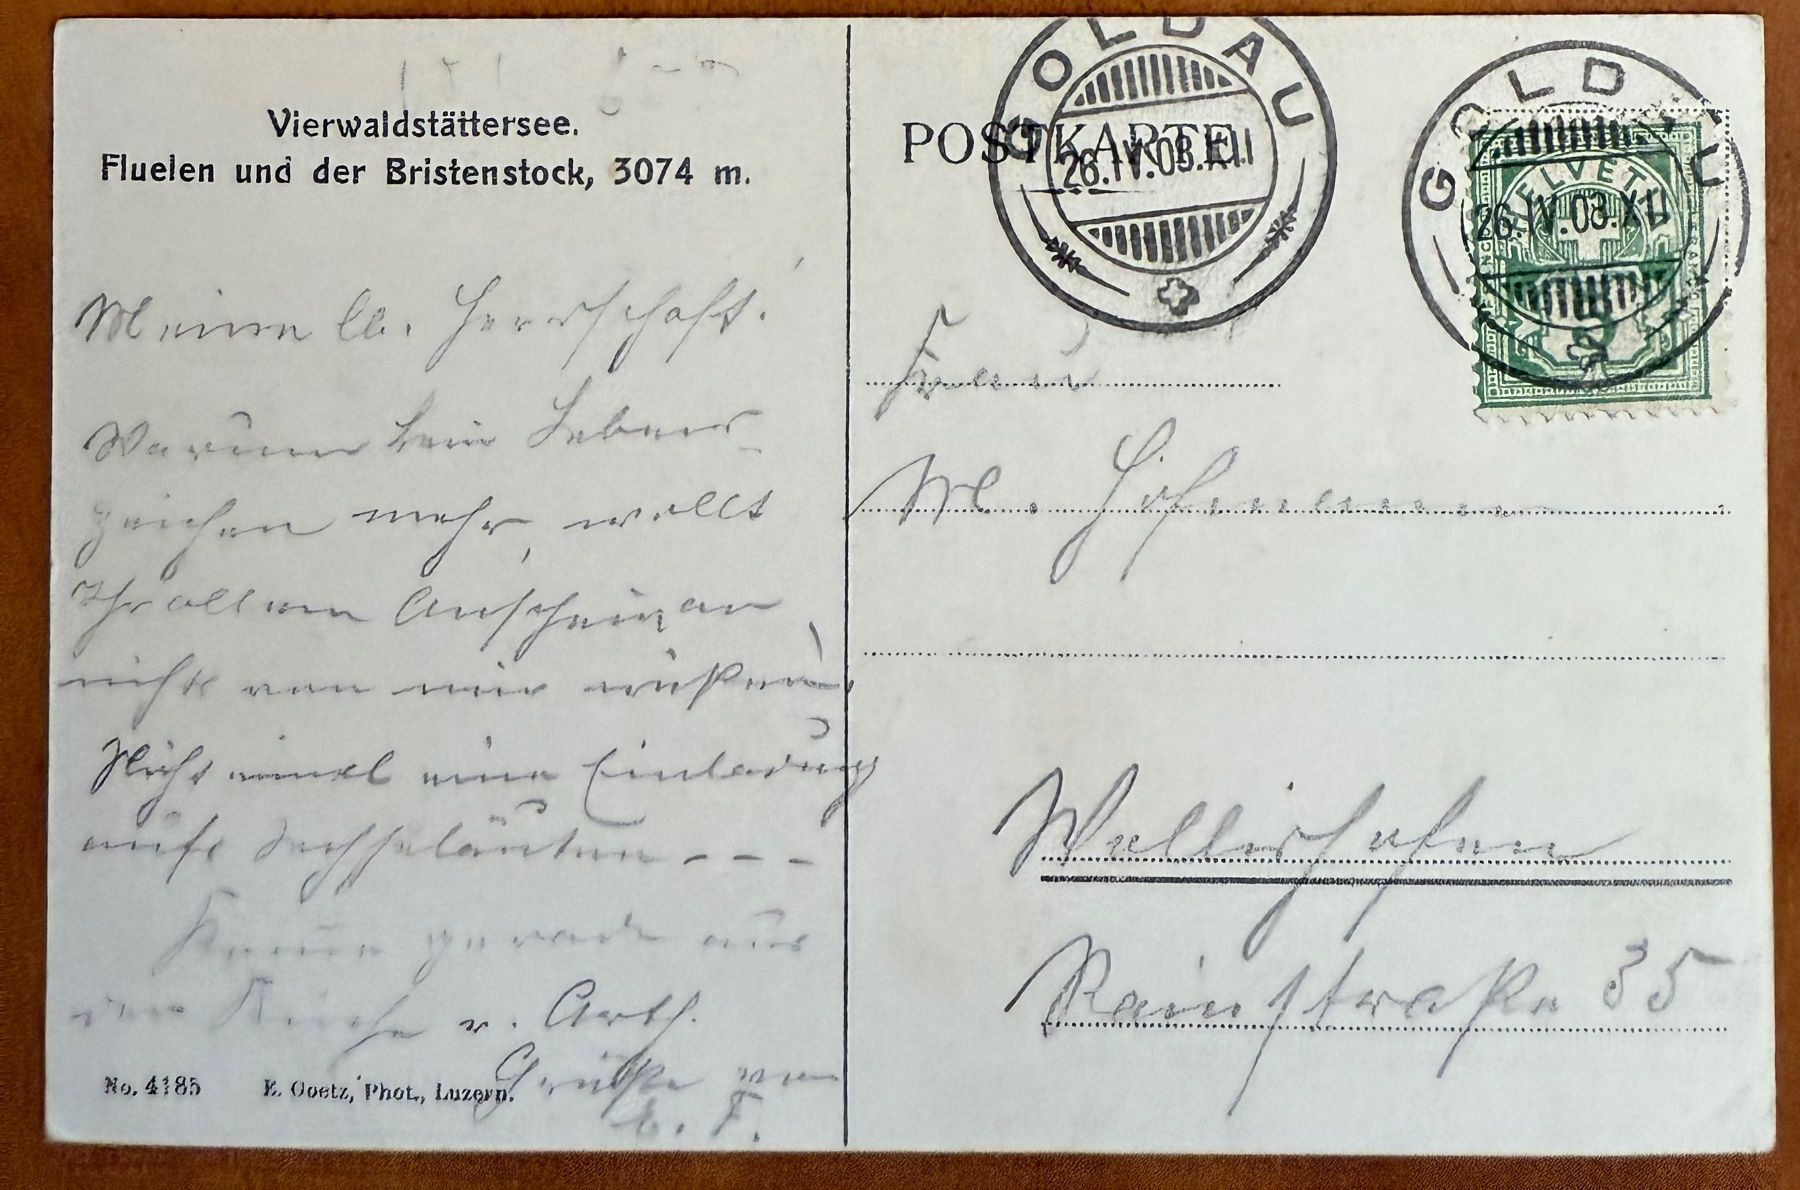 Vierwaldstättersee.
Fluelen und der Bristenstock, 3074 m.
Meine lb. Herrschaft!
Warum kein Lebens-
zeichen mehr, wollt
Ihr allem Anschein an
nichts von mir wißen,
Nicht einmal eine Einladung
aufs Sechseläuten - - -
Komme gerade aus
der Kirche v. Arth.
Grüße von
No. 4185 E. Goetz, Phot., Luzern.
POSTKARTE
GOLDAU
26.IV.08.XII
GOLDAU
26.IV.08.XII
HELVETIA
Frau
M. Hofmann
Wollishofen
Rainstraße 35